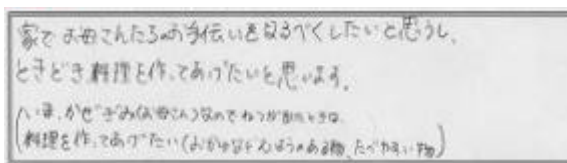 家でお母さんたちのお手伝いをなるべくしたいと思うし、
ときどき料理を作ってあげたいと思います。
(今、かぜぎみ(お母さん)なのでねつが出たときは、
料理を作ってあげたい(おかゆなどえいようのある物、たべやすい物)